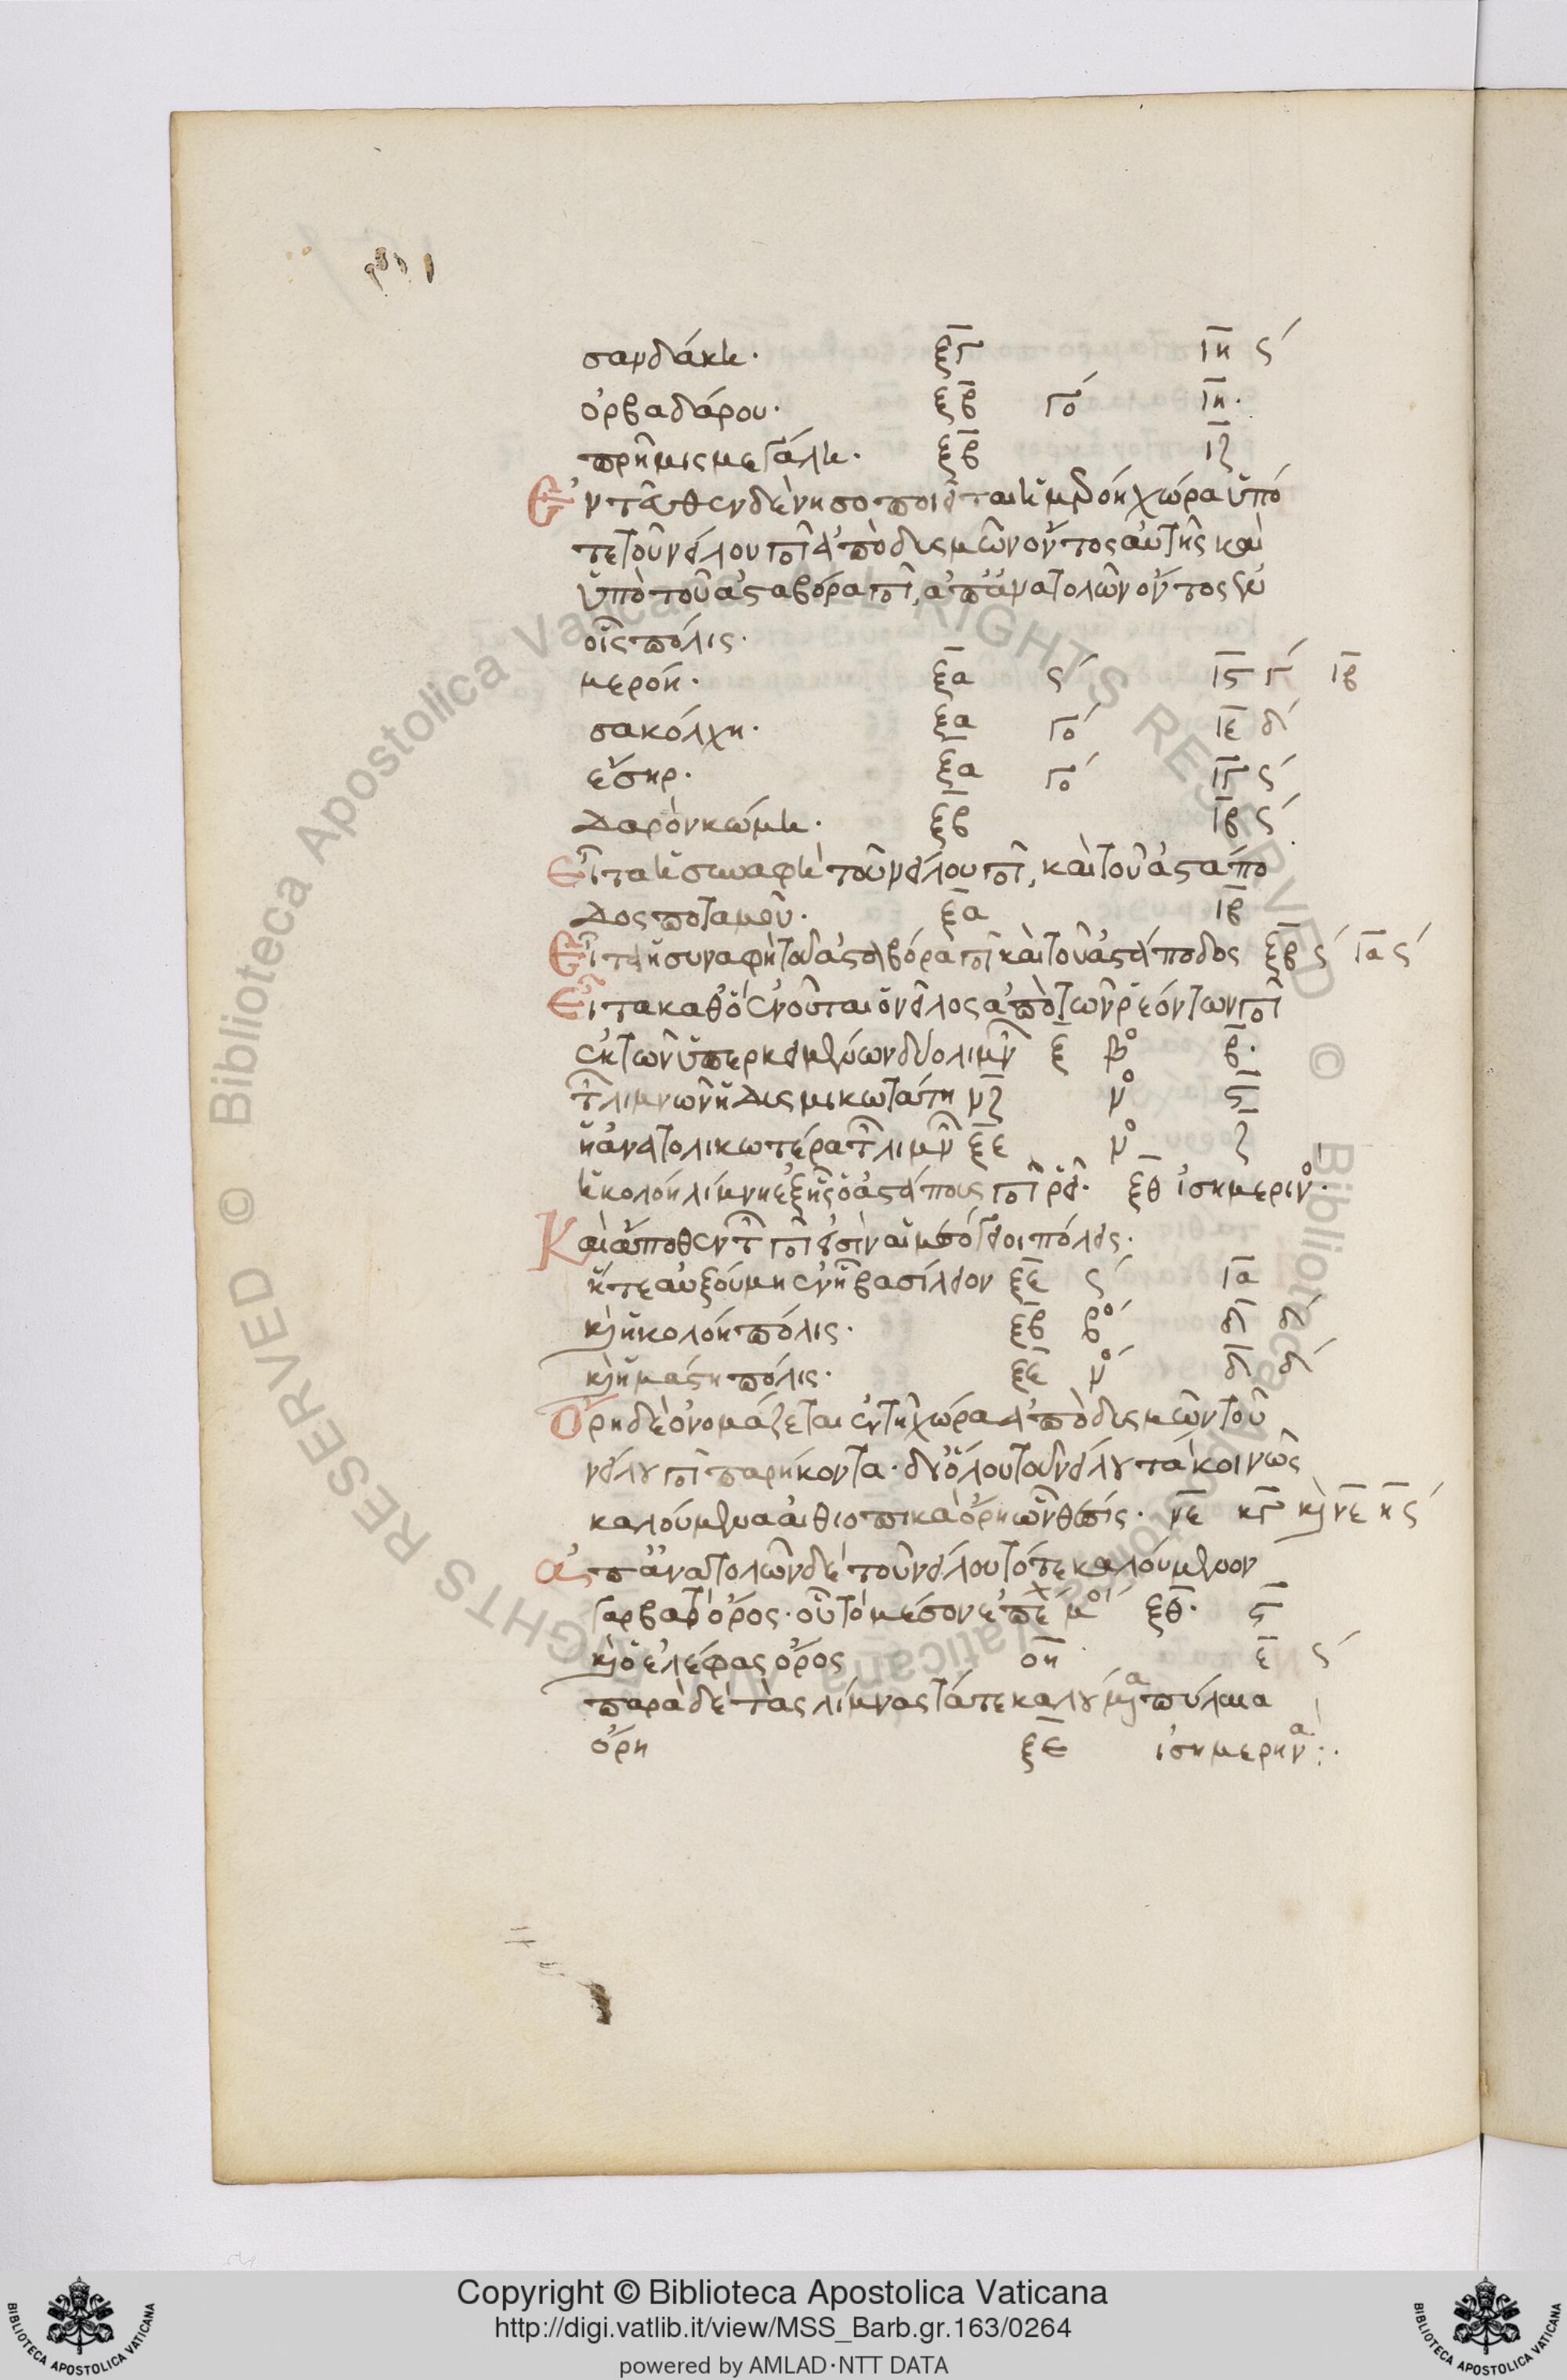 σανδάκη. ξγ ιη ς΄
ὀρβαδάρου. ξβ γο΄ ιη.
πρῆμις μεγάλη. ξβ ιζ
Ἐντεῦθεν δὲ νησοποιεῖται ἡ μερόη χώρα ὑπό
τε τοῦ νείλου ποτ ἀπὸ δυσμῶν ὄντος αὐτῆς καὶ
ὑπὸ τοῦ ἀσταβόρα ποτ, ἀπ ἀνατολῶν ὄντος ἐν
οἷς πόλις.
μερόη. ξα ς΄ ις γ΄ ιβ
σακόλχη. ξα γο΄ ιε δ΄
ἔσηρ. ξα γο΄ ιγ ς΄
Δαρὸν κώμη. ξβ ιβ ς΄
Εἶτα ἡ συναφὴ τοῦ νείλου ποτ, καὶ τοῦ ἀσταπο
δος ποταμοῦ. ξα ιβ
Εἶτα ἡ συναφὴ τοῦ ἀσταβόρα ποτ καὶ τοῦ ἀστάποδος ξβ ς΄ ια ς΄
Εἶτα καθ ὃ ἑνοῦται ὁ νεῖλος ἀπὸ τῶν ῥεόντων ποτ
ἐκ τῶν ὑπερκειμένων δύο λιμν ξ βο β.
τ λιμνῶν ἡ δυσμικωτάτη νζ νο ς
ἡ ἀνατολικωτέρα τ λιμν ξε νο ζ
ἡ κολόη λίμνη ἐξ ἧς ὁ ἀστάπους ποτ ῥεῖ. ξθ ἰσημερινο.
Καὶ ἄποθεν τ ποτ εἰσὶν αἱ μεσόγειοι πόλεις.
ἥ τε αὐξούμη ἐν ᾗ βασίλειον ξε ς΄ ια
κὴ κολόη πόλις. ξβ βο΄ δ δ΄
κὴ μάστη πόλις. ξε νο΄ δ δ΄
Ὄρη δὲ ὀνομάζεται ἐν τῇ χώρα ἀπὸ δυσμῶν τοῦ
νείλου ποτ παρήκοντα. δι ὅλου τοῦ νείλου τὰ κοινῶς
καλούμενα αἰθιοπικὰ ὄρη ὧν θέσις. νε κγ κ νε η ς΄
ἀπ ἀνατολῶν δὲ τοῦ νείλου τό τε καλούμενον
γαρβατ ὄρος. οὗ τὸ μέσον ἐπέχ μο ξθ. ς
κ ὁ ἐλέφας ὄρος οη ε ς΄
παρὰ δὲ τὰς λίμνας τά τε καλούμενα πύλαια
ὄρη ξε ἰσημερηνα:.
Copyright © Biblioteca Apostolica Vaticana
http://digi.vatlib.it/view/MSS_Barb.gr.163/0264
powered by AMLAD·NTT DATA